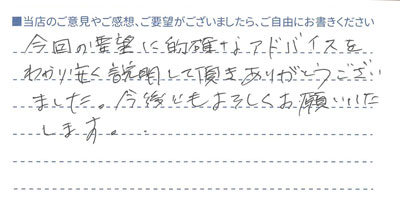 ■当店のご意見やご感想、ご要望がございましたら、ご自由にお書きください
今回の要望に的確なアドバイスを
わかり安く説明して頂きありがとうござい
ました。今後ともよろしくお願いいた
します。